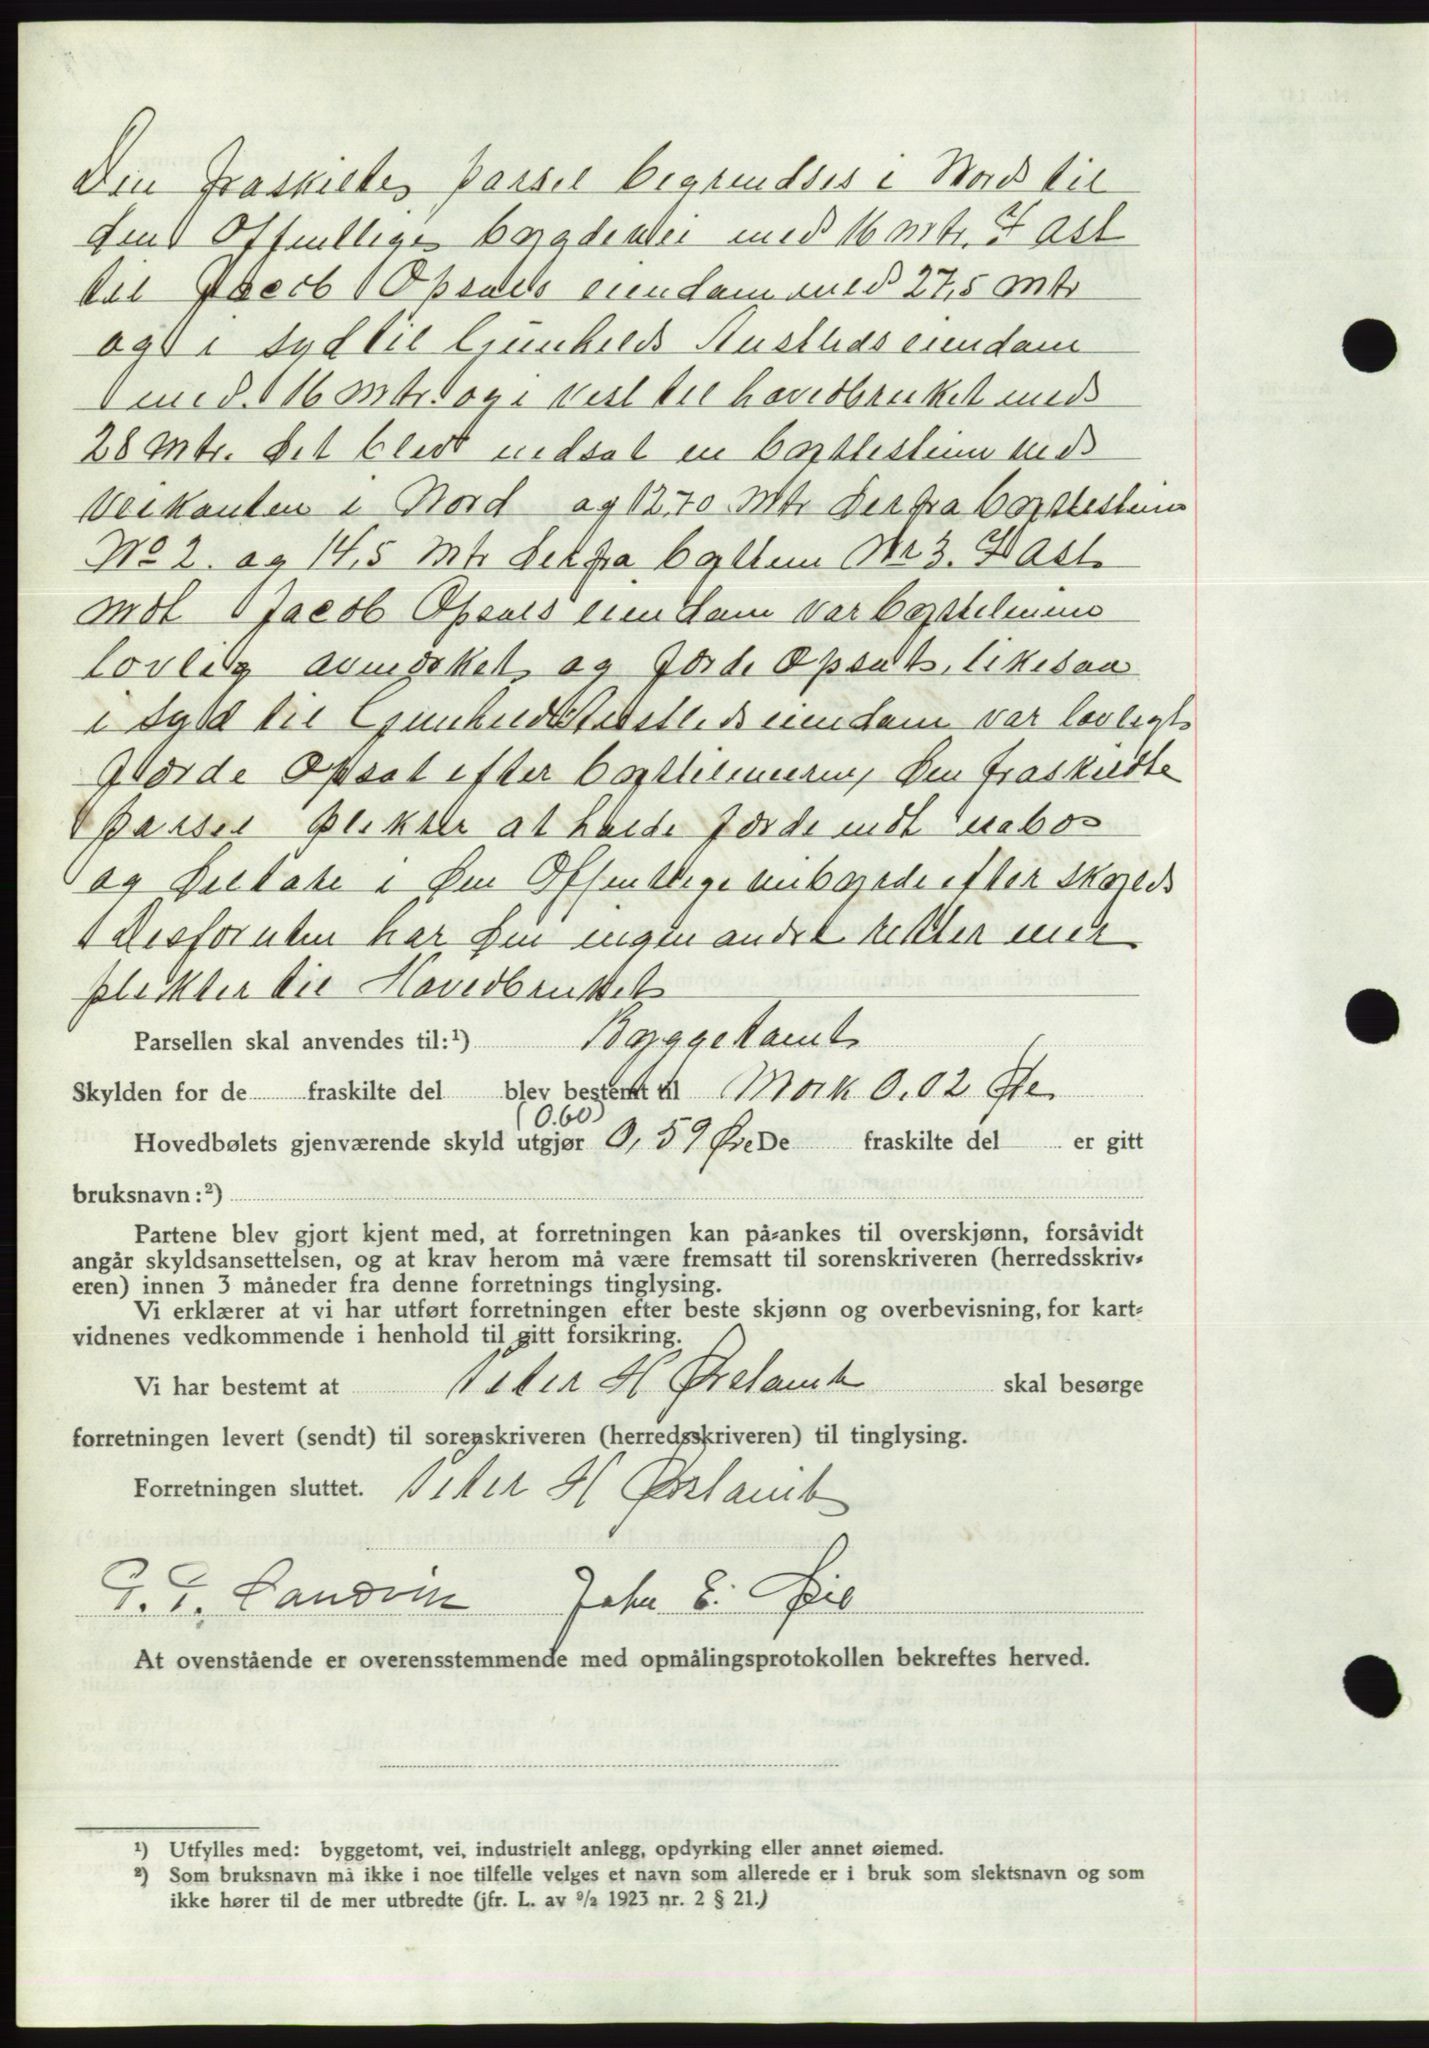 Den fraskilte parsel begrendses i Nord til
den Offentlige bygdevei med 16 mtr. I ast
til Jacob Opsals eiendam med 27,5 mtr
og i syd til Gunhilds Austlids eiendam
med 16 mtr. og i vest til hovedbruket med
28 mtr. Det blev nedsat en byttestein ved
veikanten i Nord og 12,70 mtr derfra byttestein
No 2. og 14,5 mtr derfra byttein Nr 3. I ast
mot Jacob Opsals eiendam var byttelinien
lovlig avmerket og Jærde Opsat, likesaa
i syd til Gunhilds Austlids eiendam var lovlegt
Jærde Opsat efter byttelinien, Den fraskildte
parsel plikter at holde Jærde mot nabo
og deltate i den Offentlige veibyrde efter skyld
Desforuten har den ingen andre retter eller
plikter til Hovedbruket
Parsellen skal anvendes til:¹) Byggetomt
Skylden for de fraskilte del blev bestemt til Mark 0,02 Øre
(0.60)
Hovedbølets gjenværende skyld utgjør 0,59 Øre De fraskilte del er gitt
bruksnavn:²)
Partene blev gjort kjent med, at forretningen kan på-ankes til overskjønn, forsåvidt
angår skyldsansettelsen, og at krav herom må være fremsatt til sorenskriveren (herredsskriv-
eren) innen 3 måneder fra denne forretnings tinglysing.
Vi erklærer at vi har utført forretningen efter beste skjønn og overbevisning, for kart-
vidnenes vedkommende i henhold til gitt forsikring.
Vi har bestemt at Peter H Ørslavik skal besørge
forretningen levert (sendt) til sorenskriveren (herredsskriveren) til tinglysing.
Forretningen sluttet. Peter H Ørslavik
P. P. Sandvik John E. Øie
At ovenstående er overensstemmende med opmålingsprotokollen bekreftes herved.
¹) Utfylles med: byggetomt, vei, industrielt anlegg, opdyrking eller annet øiemed.
²) Som bruksnavn må ikke i noe tilfelle velges et navn som allerede er i bruk som slektsnavn og som
ikke hører til de mer utbredte (jfr. L. av ⁹/₂ 1923 nr. 2 § 21.)